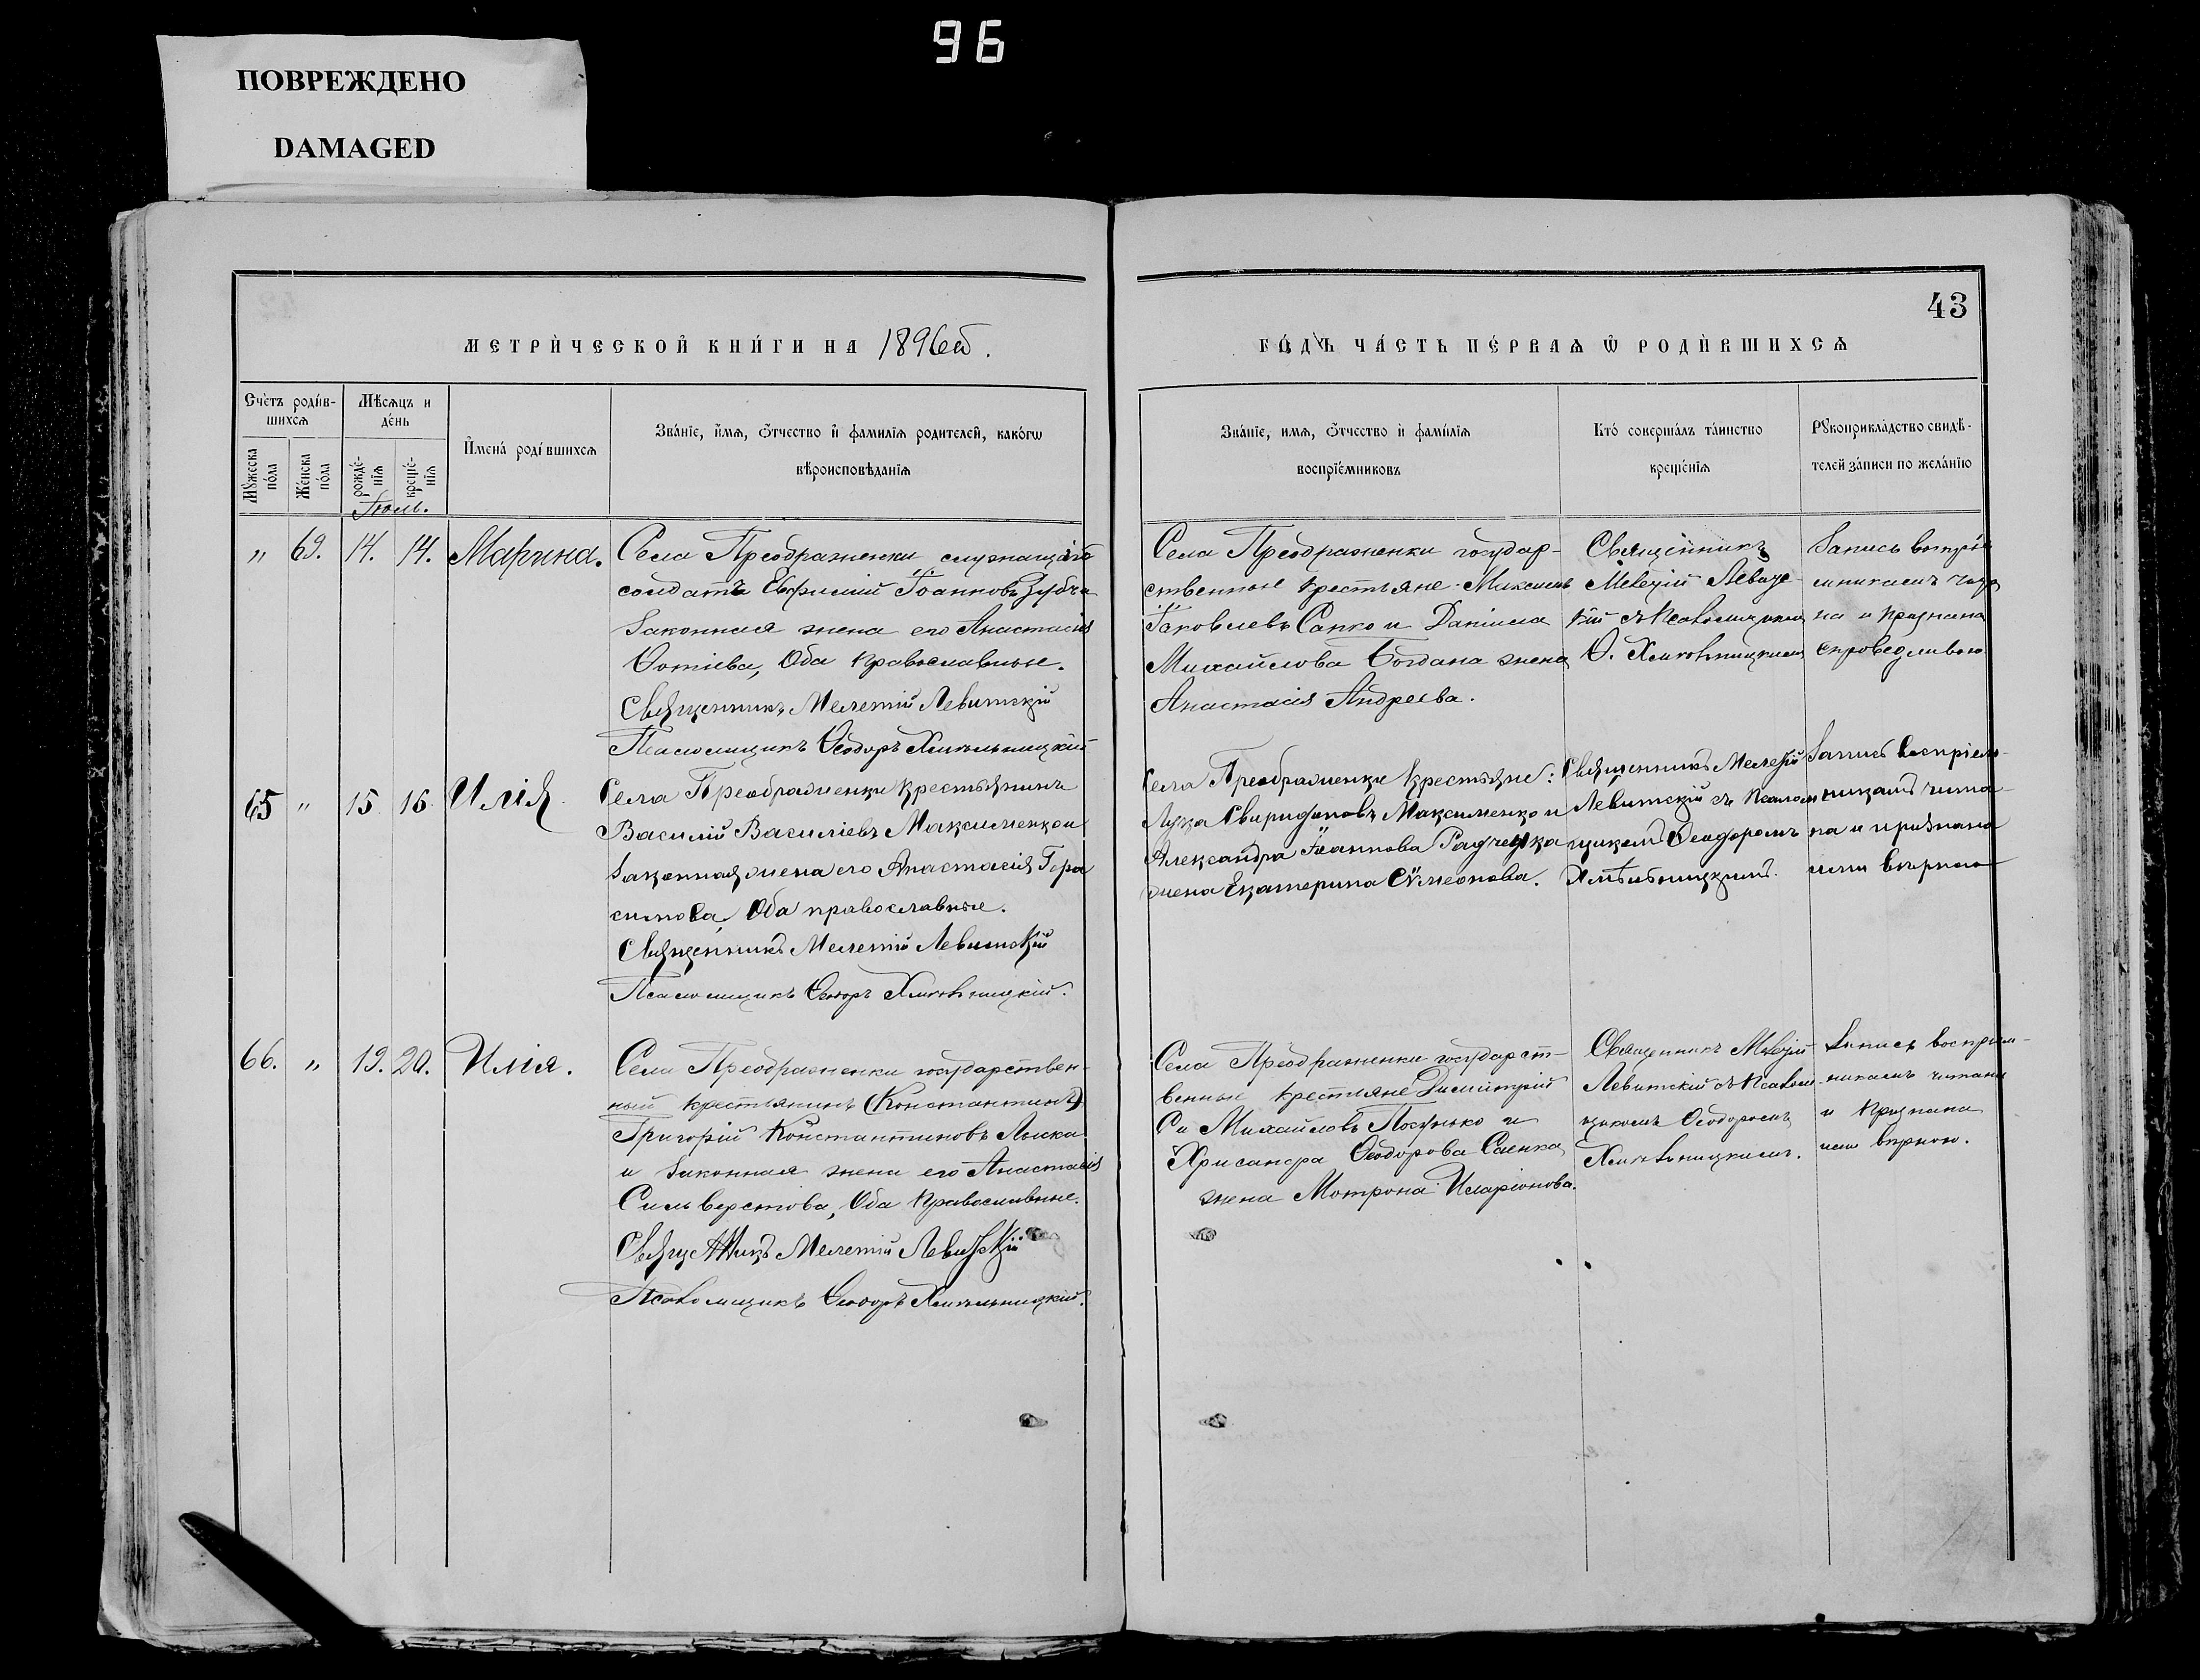 96
ПОВРЕЖДЕНО
DAMAGED
43
МЕТРИ́ЧЕСКОЙ КНИ́ГИ НА 1896й.
ГО́ДЪ ЧА́СТЬ ПЕ́РВАѦ Ѿ РОДИ́ВШИХСѦ
Сче́тъ роди́в-
шихсѧ
Мѣ́сѧцъ и
де́нь
Мꙋ́жеска
по́ла
Же́нска
по́ла
рожде́-
нїѧ
креще́-
нїѧ
Іюль.
И҆мена́ роди́вшихсѧ
Зва́нїе, и҆́мѧ, ѻ҆́тчество и҆ фами́лїѧ родителей, како́гѡ
вѣроисповѣ́данїѧ
Зва́нїе, имѧ, ѻ҆́тчество и҆ фами́лїѧ
воспрїе́мниковъ
Кто́ соверша́лъ та́инство
креще́нїѧ
Рꙋкоприкла́дство свидѣ́-
телей за́писи по жела́нїю
" 69. 14. 14. Марина.
Села Преображенки служащаго
солдата Евфимій Іоанновъ Зубча
Законная жена его Анастасія
Фотіева, Оба православные.
Священникъ Мелетій Левитскій
Псаломщикъ Ѳеодоръ Хмельницкій
Села Преображенки государ-
ственные крестьяне Максимъ
Іаковлевъ Сапко и Даніила
Михайлова Богдана жена
Анастасія Андреева.
Священникъ
Мелетій Левит-
кій съ Псаломщикомъ
Ѳ. Хмельницкимъ
Запись воспріе-
мникамъ чита
на и признана
справедливою
65 " 15. 16. Илія.
Села Преображенки крестьянинъ
Василій Василіевъ Максименко и
Законная жена его Анастасія Гера
симова, Оба православные.
Священникъ Мелетій Левитскій
Псаломщикъ Ѳеодоръ Хмельницкій.
Села Преображенки крестьяне:
Лука Свиридоновъ Максименко и
Александра Іоаннова Радченка
жена Екатерина Сѵмеонова.
Священникъ Мелетій
Левитскій съ Псалом
щикомъ Ѳеодоромъ
Хмѣльницкимъ.
Запись воспріем-
никамъ чита-
на и признана
ими вѣрною
66. " 19. 20. Илія.
Села Преображенки государствен-
ный крестьянинъ (Константинъ)
Григорій Константиновъ Лыска
и законная жена его Анастасія
Сильверстова, Оба Православные.
Священникъ Мелетій Левитскій
Псаломщикъ Ѳеодоръ Хмельницкій.
Села Преображенки государст-
венные крестьяне Димитрій
Са Михайловъ и
Хрисанфа Ѳеодорова Саенка
жена Мотрона Иларіонова.
Священникъ Мелетій
Левитскій съ Псалом-
щикомъ Ѳеодоромъ
Хмельницкимъ.
Запись воспріем-
никамъ читана
и признана
ими вѣрною.